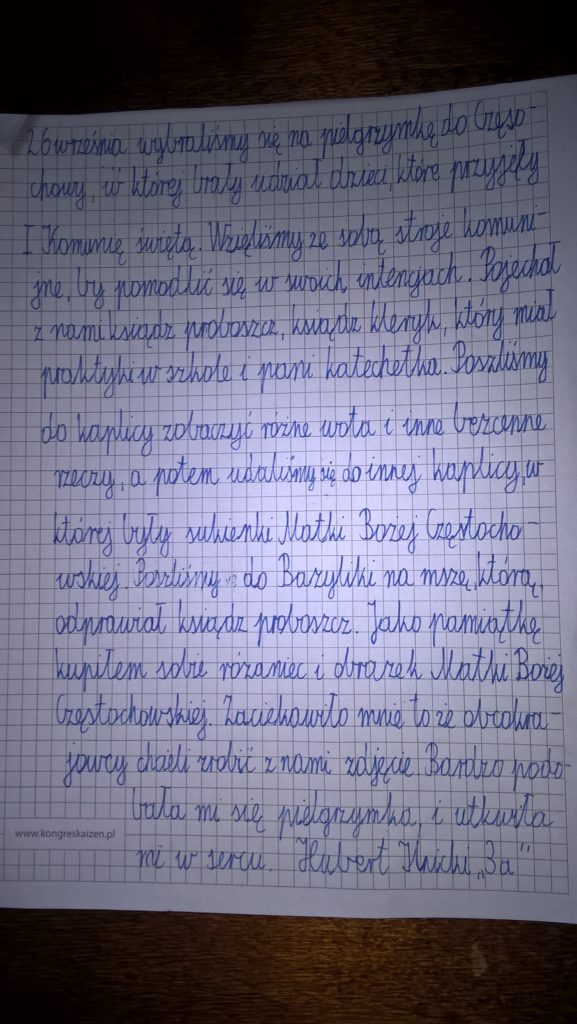 26 września wybraliśmy się na pielgrzymkę do Często-
chowy, w której brały udział dzieci, które przyjęły
I Komunię świętą. Wzięliśmy ze sobą stroje komuni-
jne, by pomodlić się w swoich intencjach. Pojechał
z nami ksiądz proboszcz, ksiądz kleryk, który miał
praktyki w szkole i pani katechetka. Poszliśmy
do kaplicy zobaczyć różne wota i inne bezcenne
rzeczy, a potem udaliśmy się do innej kaplicy, w
której były sukienki Matki Bożej Częstocho-
wskiej. Poszliśmy do Bazyliki na mszę, którą
odprawiał ksiądz proboszcz. Jako pamiątkę
kupiłem sobie różaniec i obrazek Matki Bożej
Częstochowskiej. Zaciekawiło mnie to że obcokra-
jowcy chcieli zrobić z nami zdjęcie. Bardzo podo-
bała mi się pielgrzymka i utkwiła
mi w sercu. Hubert "3a"
www.kongreskaizen.pl